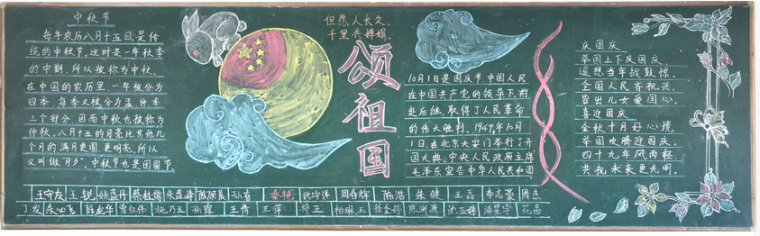 中秋节
每年农历八月十五日,是传
统的中秋节。这时是一年秋季
的中期,所以被称为中秋。
在中国的农历里,一年被分为
四季,每季又被分为孟、仲、季
三个部分,因而中秋也被称为
仲秋。八月十五的月亮比其他几
个月的满月更圆,更明亮,所以
又叫做"月夕",中秋节也是团圆节
但愿人长久,
千里共婵娟。
颂祖国
10月1日是国庆节,中国人民
在中国共产党的领导下,前
赴后继,取得了人民革命
的伟大胜利。1949年10月
1日,在北京天安门举行了开
国大典,中央人民政府主席
毛泽东宣告中华人民共和国
庆国庆
举国上下庆国庆,
遥想当年战鼓惊。
全国人民齐祝福,
皆出儿女爱国心。
喜迎国庆
金秋十月好心境,
举国欢腾迎国庆。
四十九年风雨轻,
共祝未来更光明。
王守友 王锐 孙睿 李艳 陈浩 朱健 王磊 李志豪
丁友 王倩 王萍 毕正 花雨